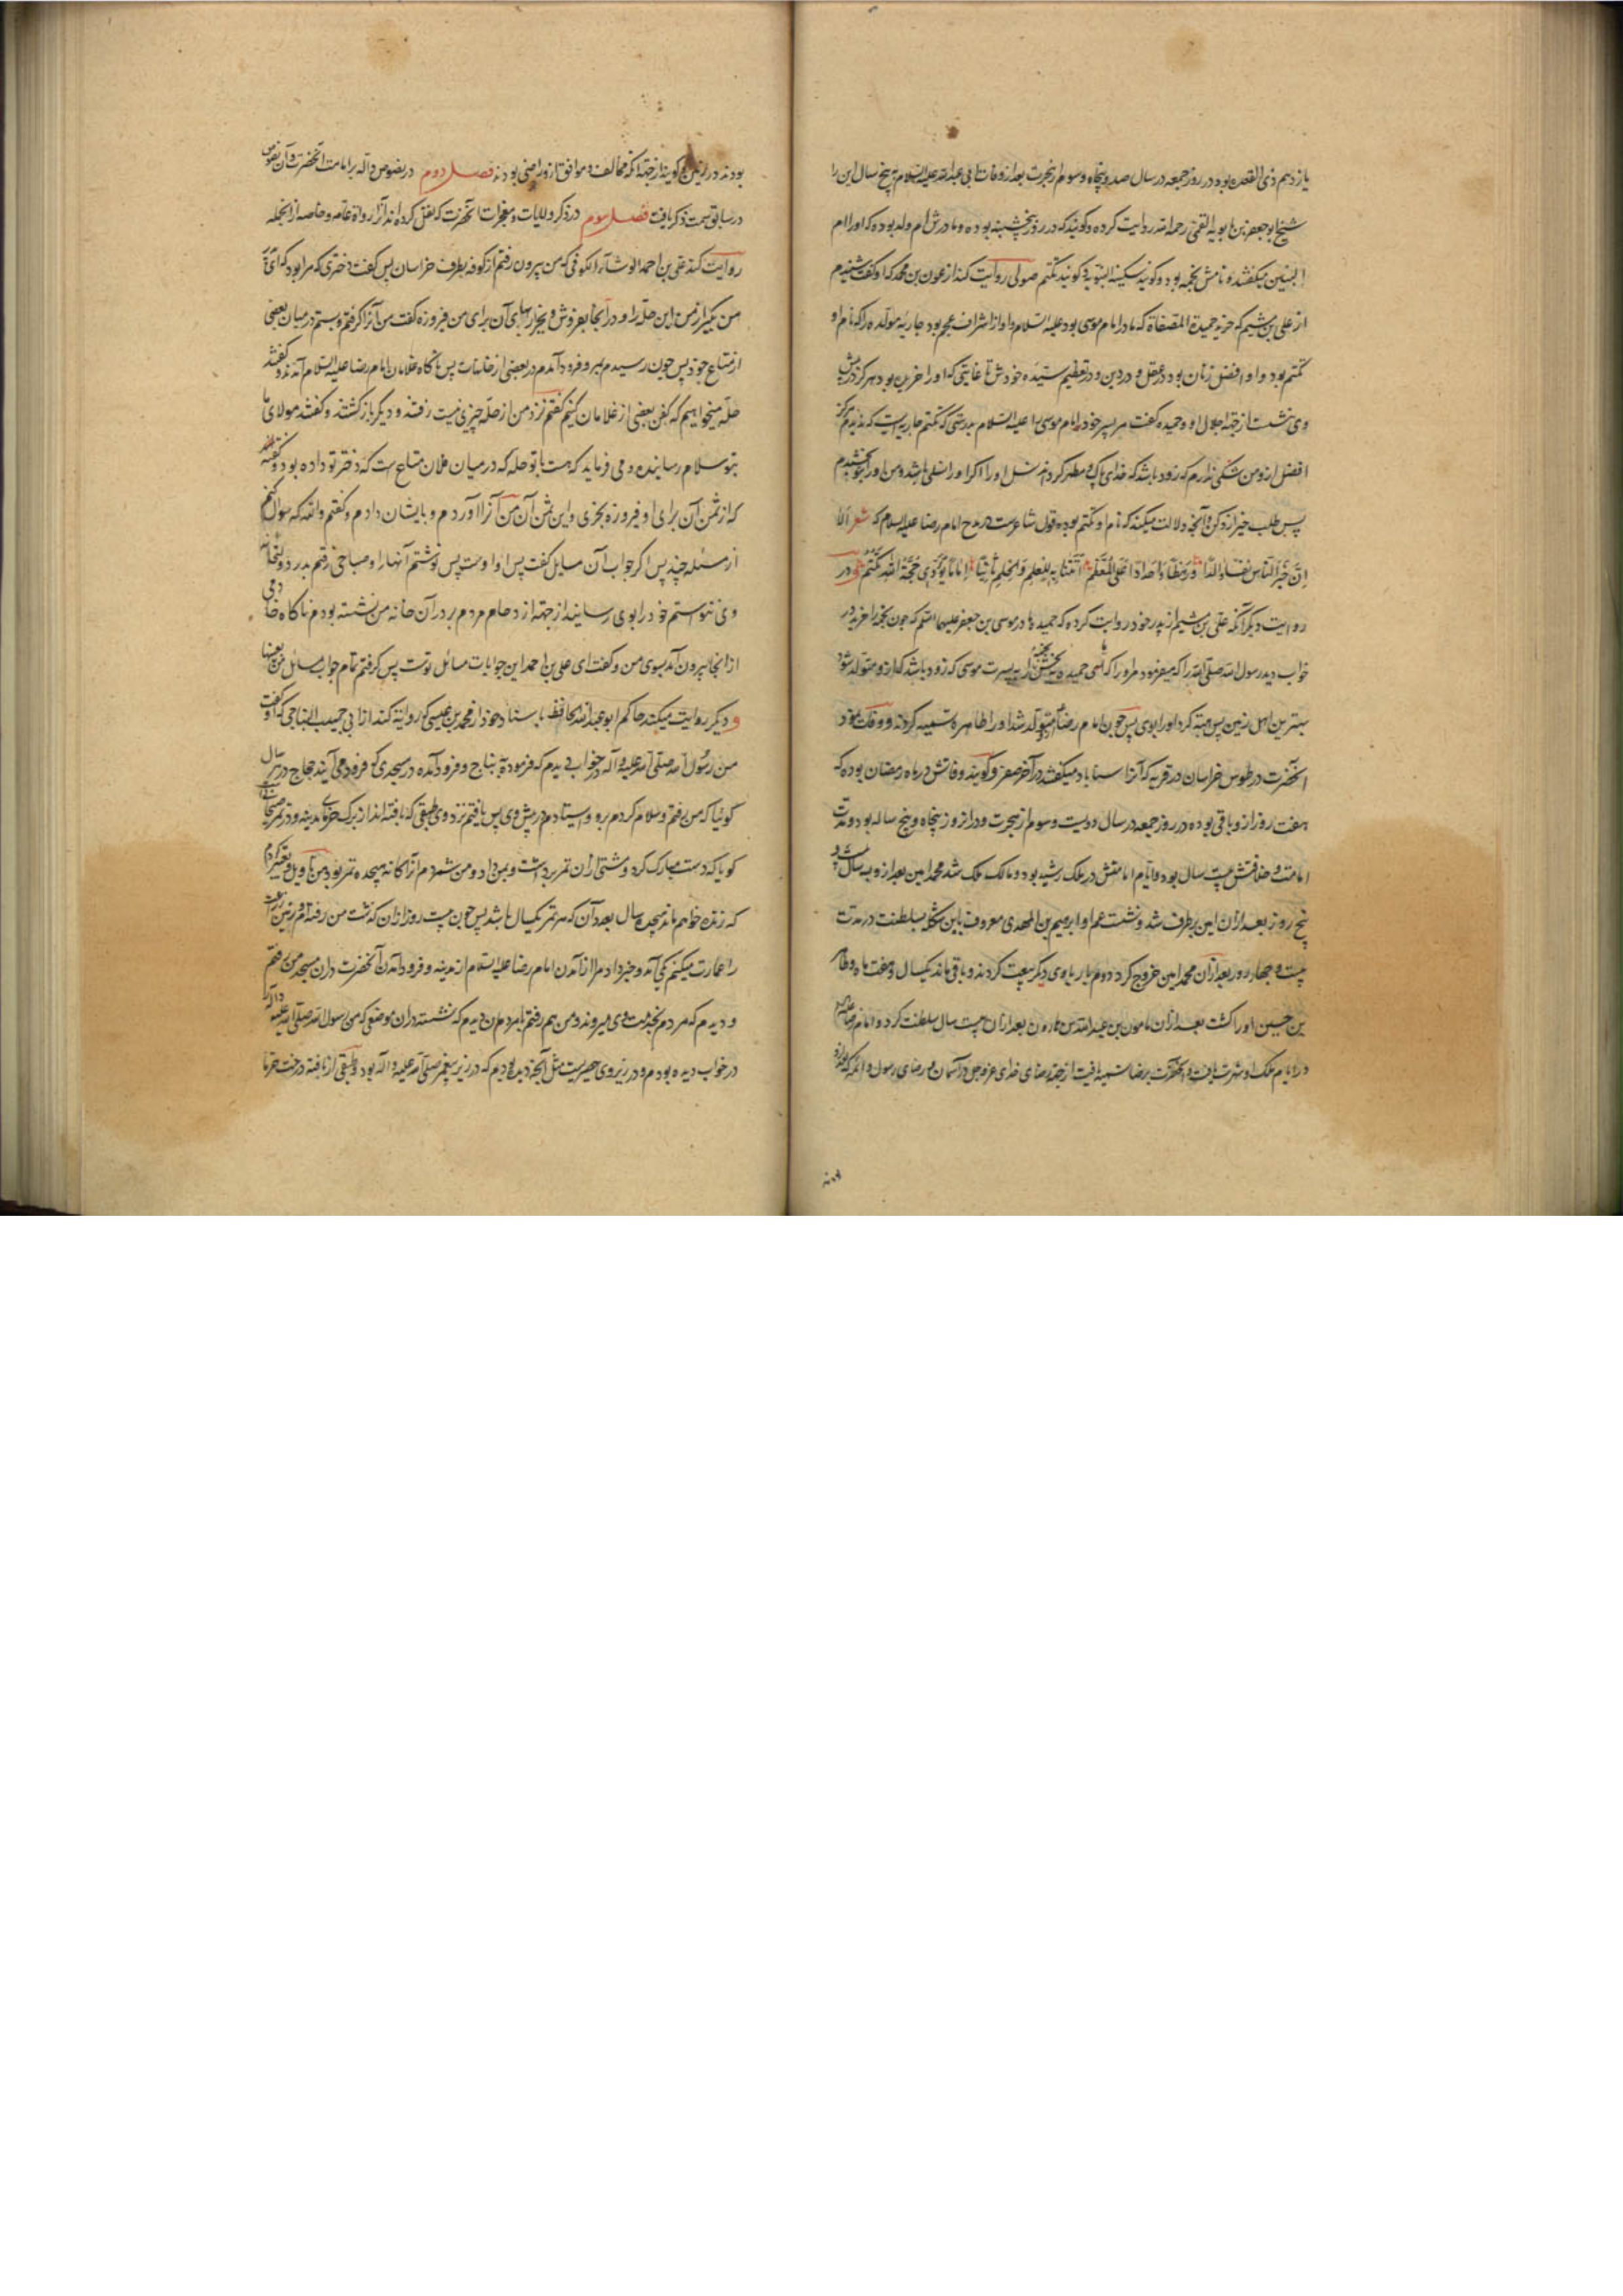 یازدهم ذی القعده بوده در روز جمعه در سال صد و پنجاه و سوم از هجرت بعد از وفات ابی عبدالله علیه السلام به پنج سال این را
شیخ ابو جعفر بن بابویه القمی رحمه الله روایت کرده و گویند که در روز پنجشنبه بوده و مادرش ام ولد بوده که او را ام
البنین میگفتند و نامش نجمه بود و گویند سکینه النوبیه و گویند تکتم صولی روایت کند از عون بن محمد که او گفت شنیدم
از علی بن میثم که خرید حمیدة المصفاة که مادر امام موسی بود علیه السلام و او از اشراف عجم بود جاریه مولده را که نام او
تکتم بود و او افضل زنان بود در عقل و در دین و در تعظیم سیده خودش تا غایتی که او را خریده بود هرگز در پیش
وی ننشست از جهة اجلال او و حمیده گفت مر پسر خود امام موسی را علیه السلام بدرستی که تکتم جاریه ایست که ندیدم هرگز
افضل از و من شکی ندارم که زود باشد که خدای پاک و مطهر گرداند نسل او را اگر او را نسلی باشد و من او را بتو بخشیدم
پس طلب خیر از و کن و آنچه دلالت میکند که نام او تکتم بوده قول شاعرست در مدح امام رضا علیه السلام که شعر الا
ان خیر الناس نفسا و والدا و رهطا و اجدادا علی المعظم اتتنا به للعلم و الحلم ثامنا اماما یؤدی حجة الله تکتم و در
روایت دیگر آنکه علی بن میثم از پدر خود روایت کرده که حمیده مادر موسی بن جعفر علیهما السلم که چون نجمه را خرید در
خواب دید رسول الله صلی الله را که میفرمود مر او را که ای حمیده ببخش نجمه را به پسرت موسی که زود باشد که از و متولد شود
بهترین اهل زمین پس هبه کرد او را بوی پس چون امام رضا متولد شد او را طاهره تسمیه کردند و وفات نمود
آنحضرت در طوس خراسان در قریه که آنرا سناباد میگفتند در آخر صفر و گویند وفاتش در ماه رمضان بوده که
هفت روز از و باقی بوده در روز جمعه در سال دویست و سوم از هجرت و در آنروز پنجاه و پنج ساله بود و مدت
امامت و خلافتش بیست سال بود و ایام امامتش در ملک رشید بود و مالک ملک شد محمد امین بعد از و سه سال و بیست و
پنج روز بعد از ان امین برطرف شد و نشست عم او ابرهیم بن المهدی معروف بابن شکله بسلطنت در مدت
بیست و چهار روز بعد از ان محمد امین خروج کرد دوم بار با وی دیگر بیعت کردند و باقی ماند یکسال و هفت ماه و طاهر
بن حسین او را کشت بعد از ان مامون بن عبدالله بن هارون بعد از ان بیست سال سلطنت کرد و امام رضا علیه السلام
در ایام ملک او شهرت یافت و آنحضرت برضا تسمیه یافت از جهة رضای خدای عز و جل در آسمان و رضای رسول و ائمه که بودند
بودند در زمین و گویند از جهة آنکه مخالف و موافق از و راضی بودند فصل دوم در نصوص داله بر امامت آنحضرت و آن نصوص
در سابق سمت ذکر یافت فصل سوم در ذکر دلایلات و معجزات آنحضرت که نقل کرده اند آنرا رواة عامه و خاصه از انجمله
روایت کند علی بن احمد الوشاء الکوفی که من بیرون رفتم از کوفه بطرف خراسان پس گفت دختری که مرا بود که ای
من بگیر از من این حله را و در آنجا بفروش و بخر از بهای آن برای من فیروزه گفت من آنرا گرفتم و بستم در میان بعضی
از متاع خود پس چون رسیدم بمرو فرود آمدم در بعضی از خانات پس ناگاه غلامان امام رضا علیه السلام آمدند و گفتند
حله میخواهیم که کفن بعضی از غلامان کنیم گفتم نزد من از حله چیزی نیست رفتند و دیگر باز گشتند و گفتند مولای ما
بتو سلام رسانیده و می فرماید که هست با تو حله که در میان فلان متاع ست که دختر تو داده بود و گفته
که از ثمن آن برای او فیروزه بخری و این ثمن آن من آنرا آوردم و بایشان دادم و گفتم والله که سوال کنم
از مسئله چند پس اگر جواب آن مسایل گفت پس او اوست پس نوشتم آنها را و صباحی رفتم بدر دولتخانه
وی نتوانستم خود را بوی رسانید از جهة ازدحام مردم بر در آن خانه من نشسته بودم ناگاه خادمی
از انجا بیرون آمد بسوی من و گفت ای علی بن احمد این جوابات مسائل تست پس گرفتم تمام جواب مسائل من بعینها
و دیگر روایت میکند حاکم ابو عبدالله الحافظ باسناد خود از محمد بن عیسی که روایت کند از ابی حبیب النباجی که او گفت
من رسول الله صلی الله علیه و آله در خواب دیدم که فرموده به نباج و فرود آمده در مسجدی که فرود می آیند حجاج در هر سال
گوئیا که من رفتم و سلام کردم برو و ایستادم در پیش وی پس یافتم نزد وی طبقی که بافته اند از برگ خرمای مدینه و در تمر صیحانی
گویا که دست مبارک کرد و مشتی از ان تمر برداشت و بمن داد و من شمردم آنرا گانه هیجده تمر بود من تاویل و تعبیر کردم
که زنده خواهم ماند هیجده سال بعد آن که هر تمر یکسال باشد پس چون بیست روز از ان گذشت من رفته بودم زمین زراعت
را عمارت میکنم یکی آمد و خبر داد مرا از آمدن امام رضا علیه السلام از مدینه و فرود آمدن آنحضرت در ان مسجد من رفتم
و دیدم که مردم بخدمت وی میروند و من هم رفتم با مردمان دیدم که نشسته در ان موضعی که من رسول الله صلی الله علیه و آله
در خواب دیده بودم و در زیر وی حصیریست مثل آنچه دیده بودم که در زیر پیغمبر صلی الله علیه و آله بود و طبقی از بافته درخت خرما